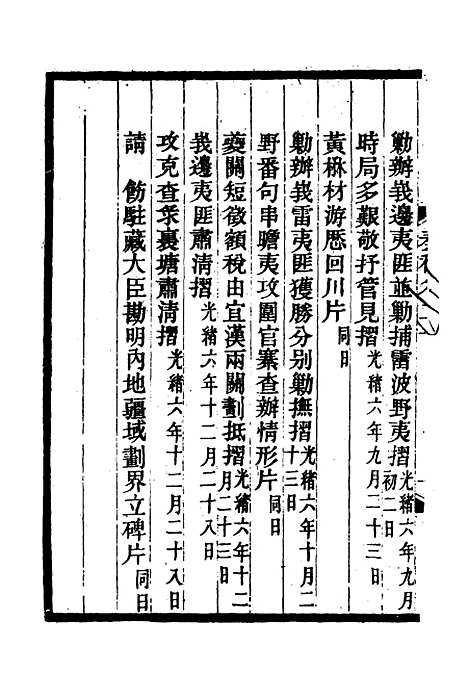 勦辦峩邊夷匪並勦捕雷波野夷摺光緒六年九月初二日
時局多艱敬抒管見摺光緒六年九月二十三日
黃楙材游歷回川片同日
勦辦峩雷夷匪獲勝分别勦撫摺光緒六年十月二十三日
野番句串瞻夷攻圍官寨查辦情形片同日
夔關短徵額稅由宜漢兩關劃抵摺光緒六年十二月二十三日
峩邊夷匪肅清摺光緒六年十二月二十八日
攻克查朶裏塘肅清摺光緒六年十二月二十八日
請 飭駐藏大臣勘明內地疆域劃界立碑片同日